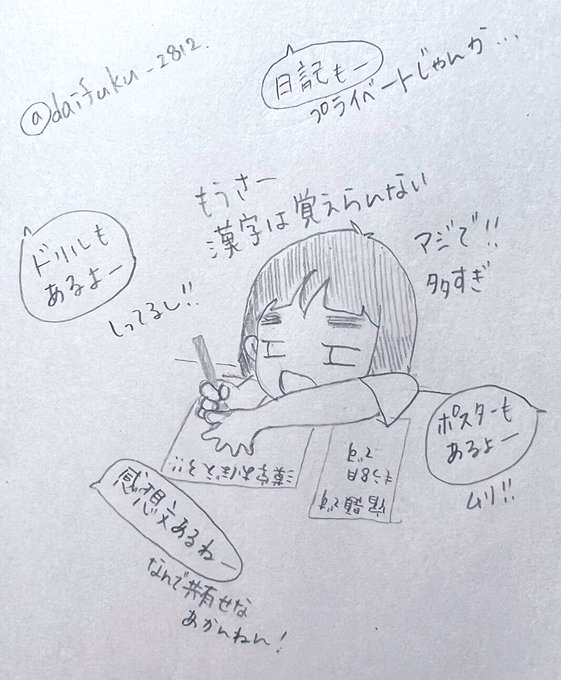 @daifuku_2812.
日記もー
プライベートじゃんか...
もうさー
漢字は覚えらんない
マジで!!
多すぎ
ドリルも
あるよー
しってるし!!
ポスターも
あるよー
ムリ!!
漢字おぼえろ!!
宿題です
もう8月
です
感想文あるねー
なんで共有せな
あかんねん!